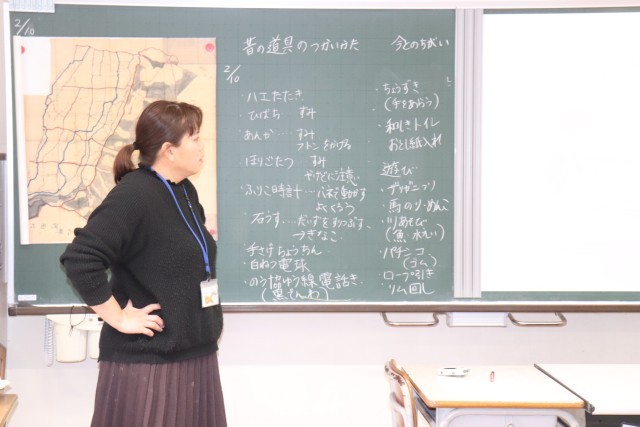 2/10
昔の道具のつかいかた　今とのちがい
2/10
・ハエたたき
・ひばち　すみ
・あんか…すみ
フトンをかける
・ほりごたつ　すみ
やけどに注意
・ふりこ時計…バネを動かす
・石うす…だいずをすりつぶす
きなこ
・手さげちょうちん
・白ねつ電球
・のう協ゆう線電話き
(黒でんわ)
・ちょうずき
(手をあらう)
・和しきトイレ
おとし紙入れ
・遊び
・馬のり
・川あそび
(魚 水えい)
・パチンコ
(ゴム)
・ロープ引き
・リム回し